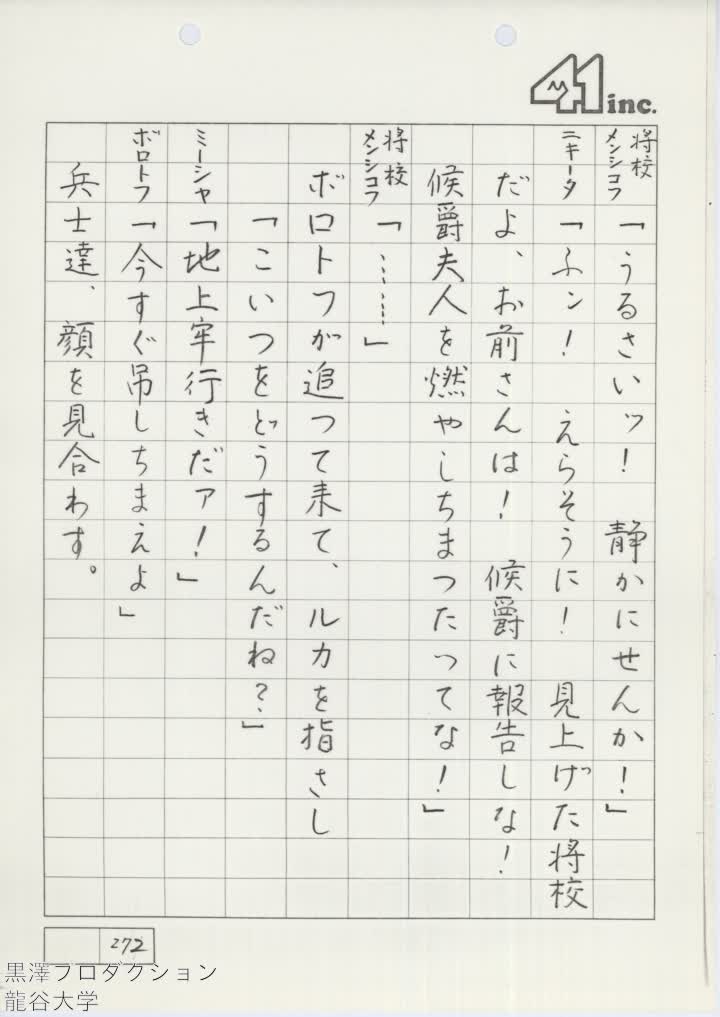 41 inc.
将校メンシコフ「うるさいッ! 静かにせんか!」
ニキータ「ふン! えらそうに! 見上げた将校
だよ、お前さんは! 候爵に報告しな!
候爵夫人を燃やしちまつたってな!」
将校メンシコフ「……」
ボロトフが追つて来て、ルカを指さし
「こいつをどうするんだね?」
ミーシャ「地上牢行きだァ!」
ボロトフ「今すぐ吊しちまえよ」
兵士達、顔を見合わす。
272
黒澤プロダクション
龍谷大学